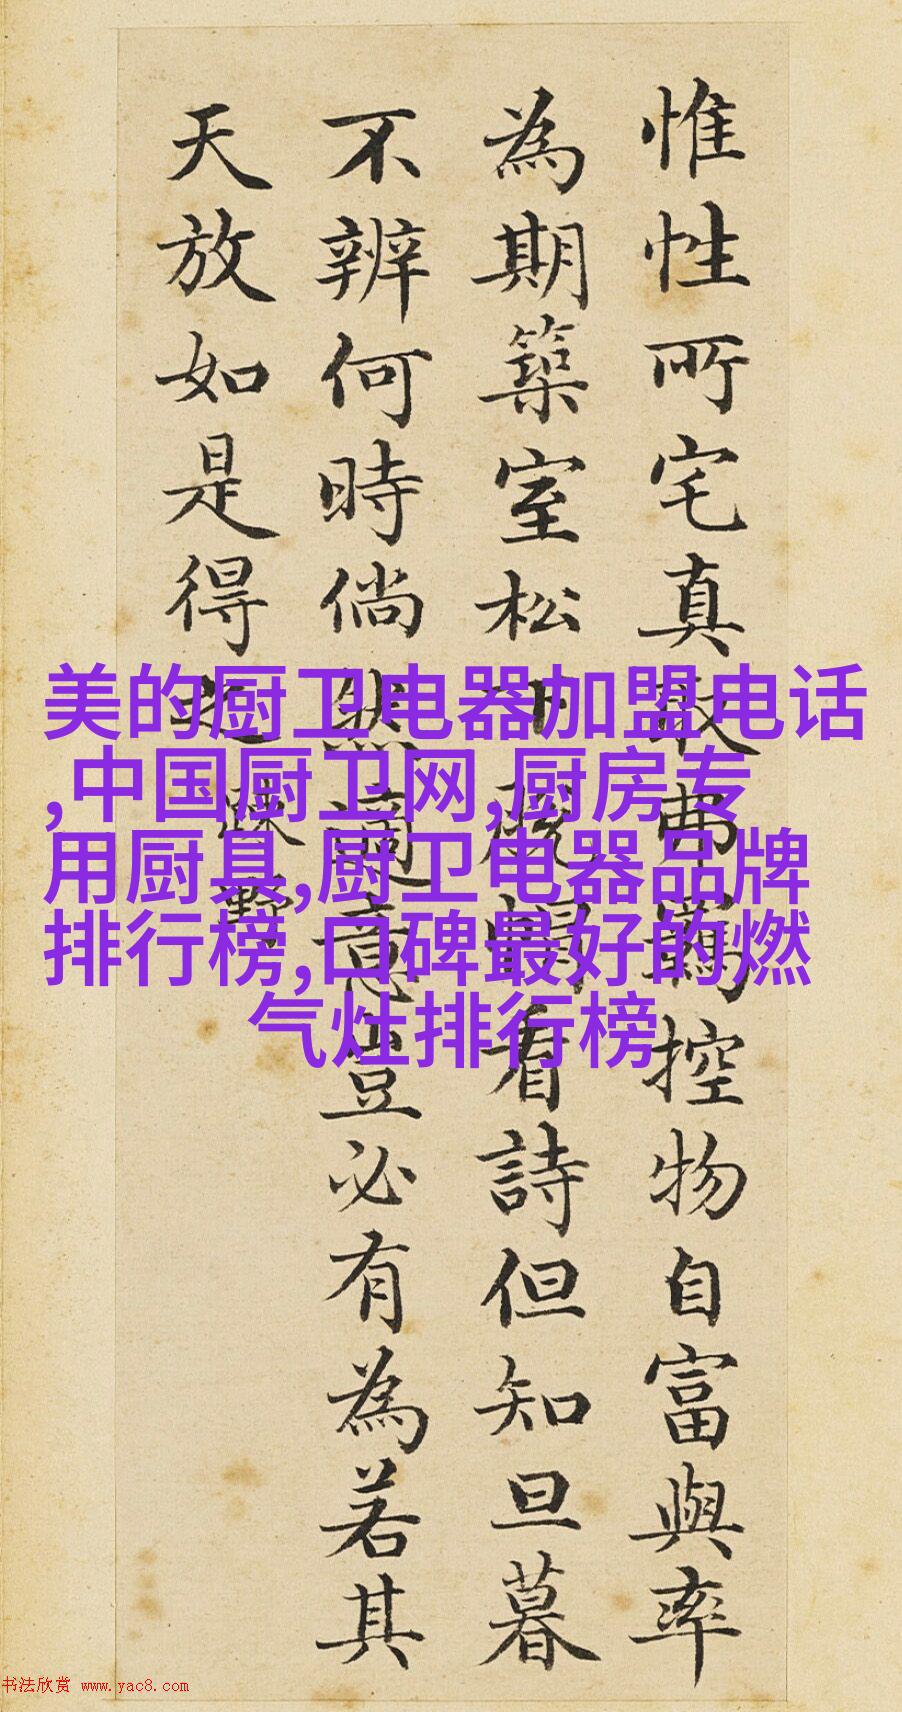 惟性所宅真取弗羈控物自富與率
為期築室松下脫帽看詩但知旦暮
不辨何時倘然適意豈必有為若其
天放如是得之
疎野
美的厨卫电器加盟电话
,中国厨卫网,厨房专
用厨具,厨卫电器品牌
排行榜,口碑最好的燃
气灶排行榜
书法欣赏 www.yac8.com